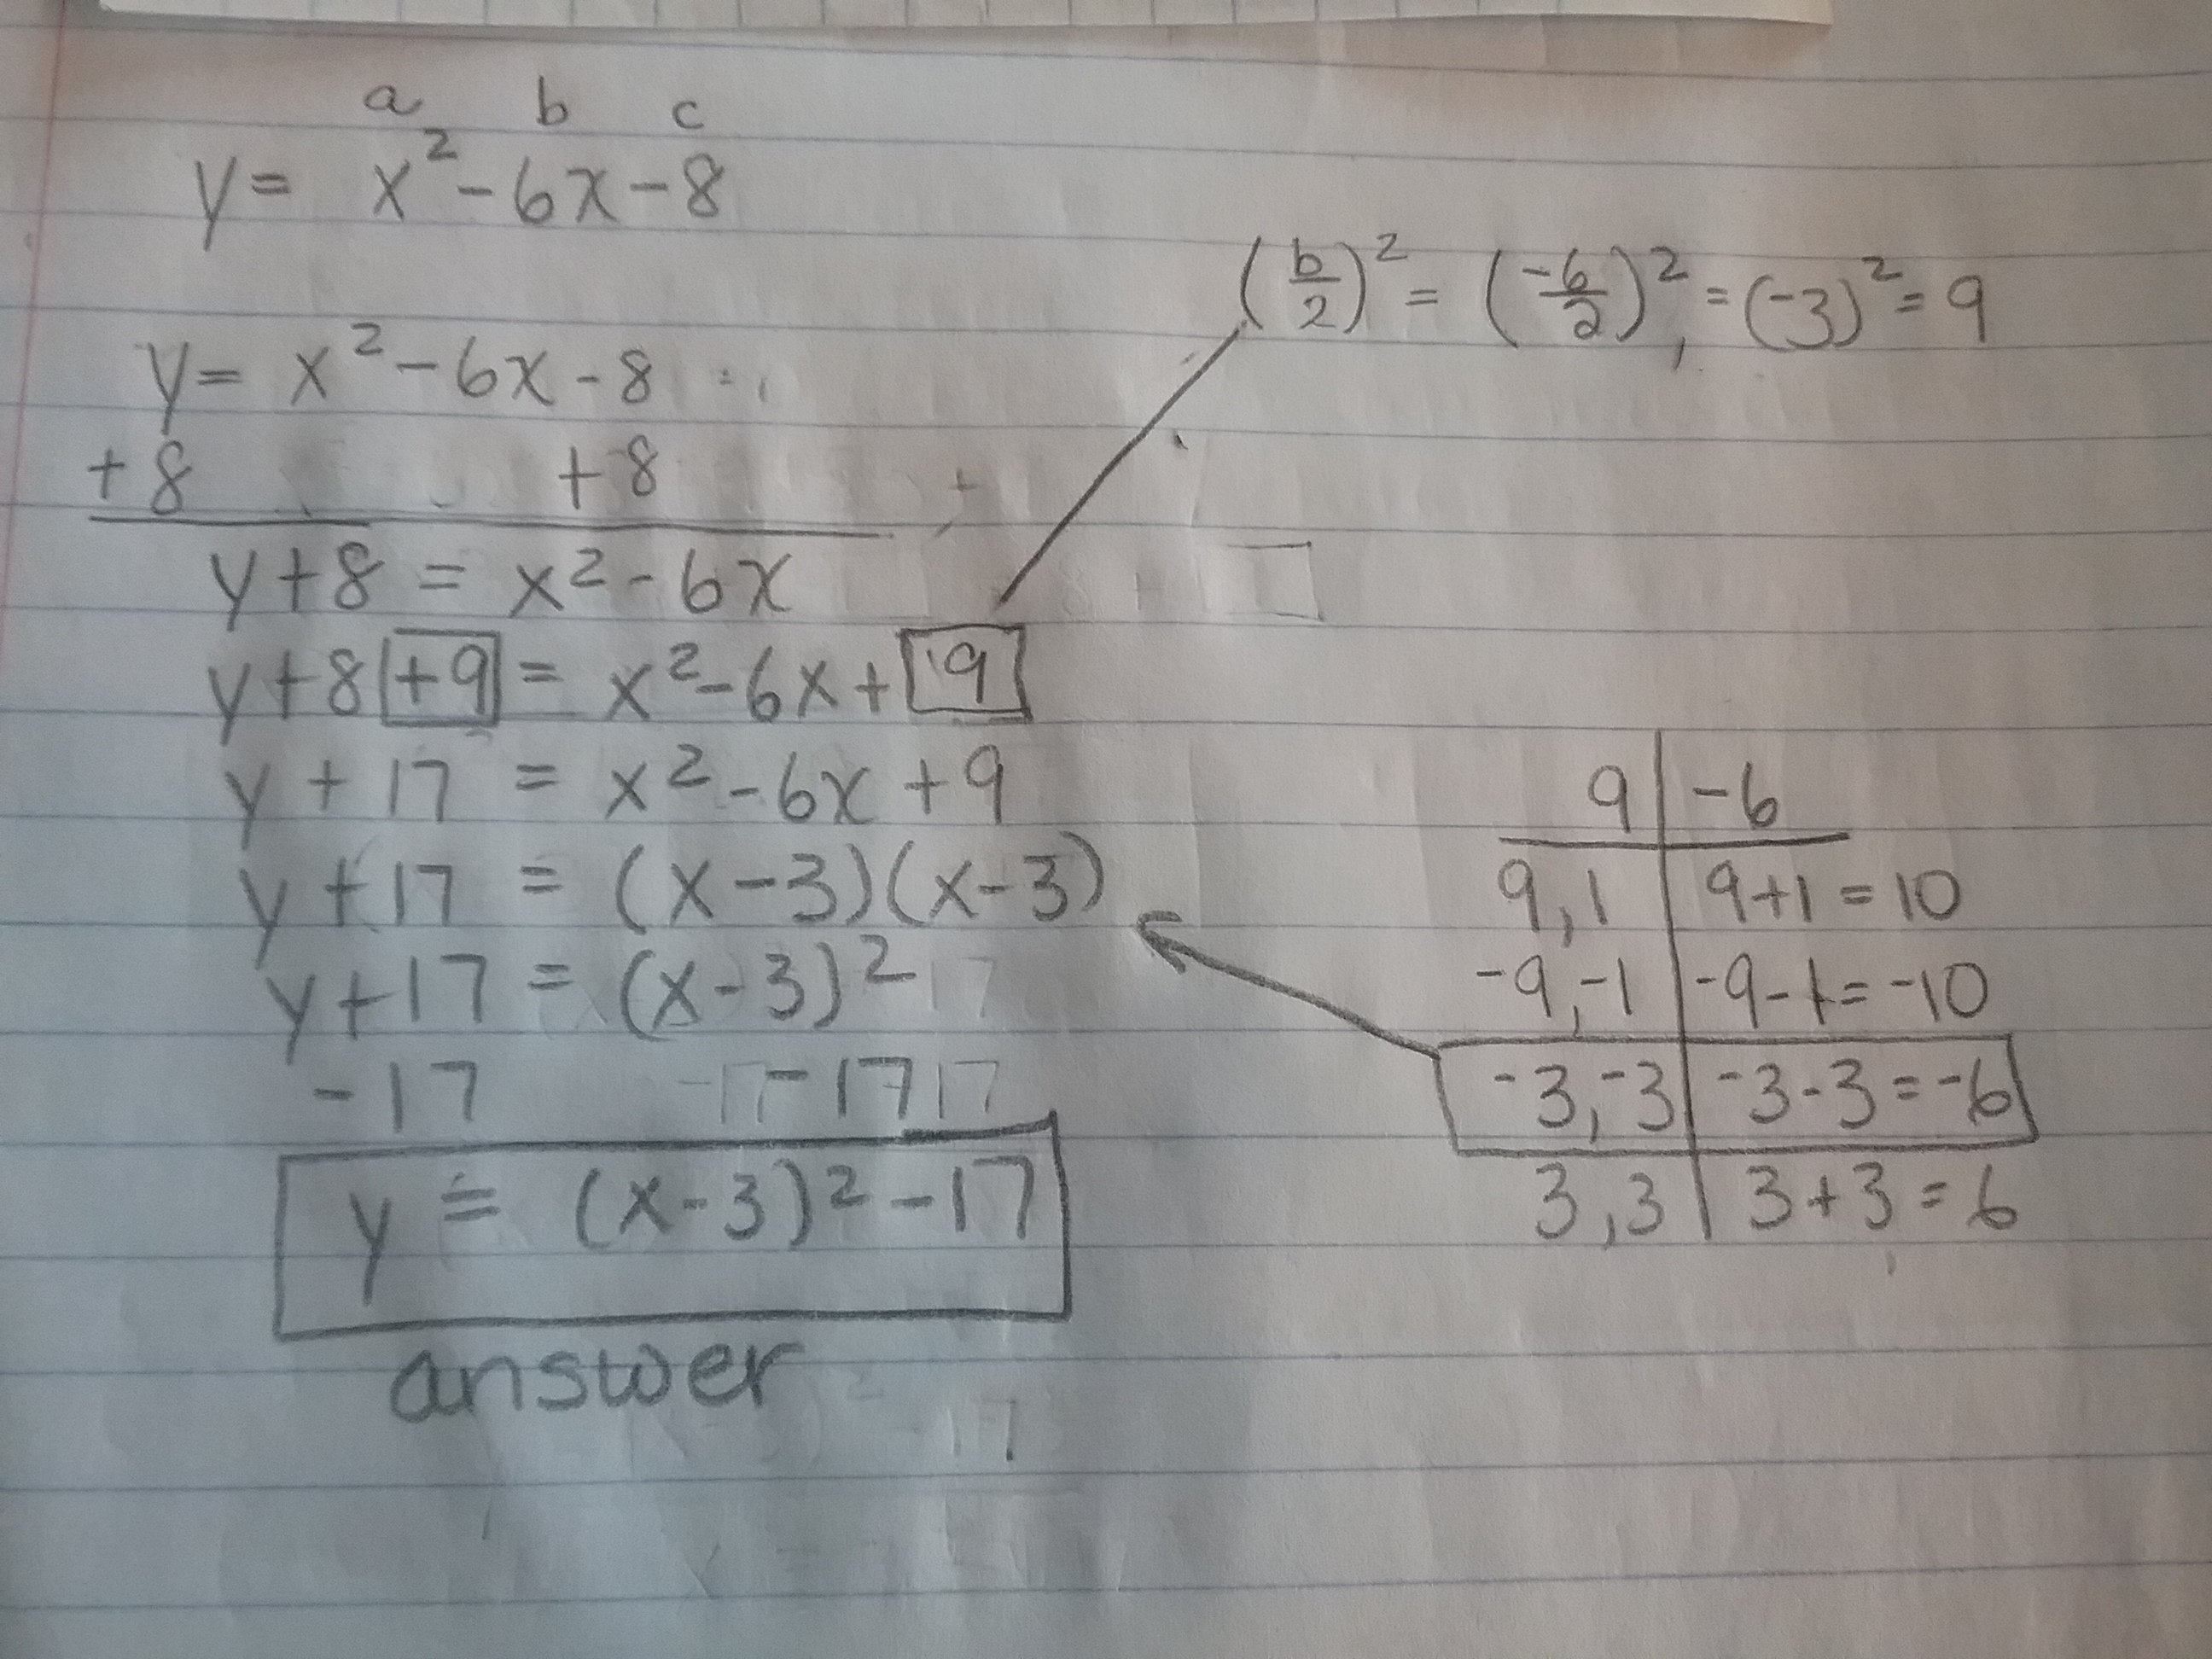 a b c
y = x² - 6x - 8
(b/2)² = (-6/2)² = (-3)² = 9
y = x² - 6x - 8
+8 +8
y + 8 = x² - 6x
y + 8 +9 = x² - 6x + 9
y + 17 = x² - 6x + 9
y + 17 = (x - 3)(x - 3)
y + 17 = (x - 3)²
-17 -17
y = (x - 3)² - 17
answer
9 | -6
9, 1 | 9 + 1 = 10
-9, -1 | -9 - 1 = -10
-3, -3 | -3 - 3 = -6
3, 3 | 3 + 3 = 6